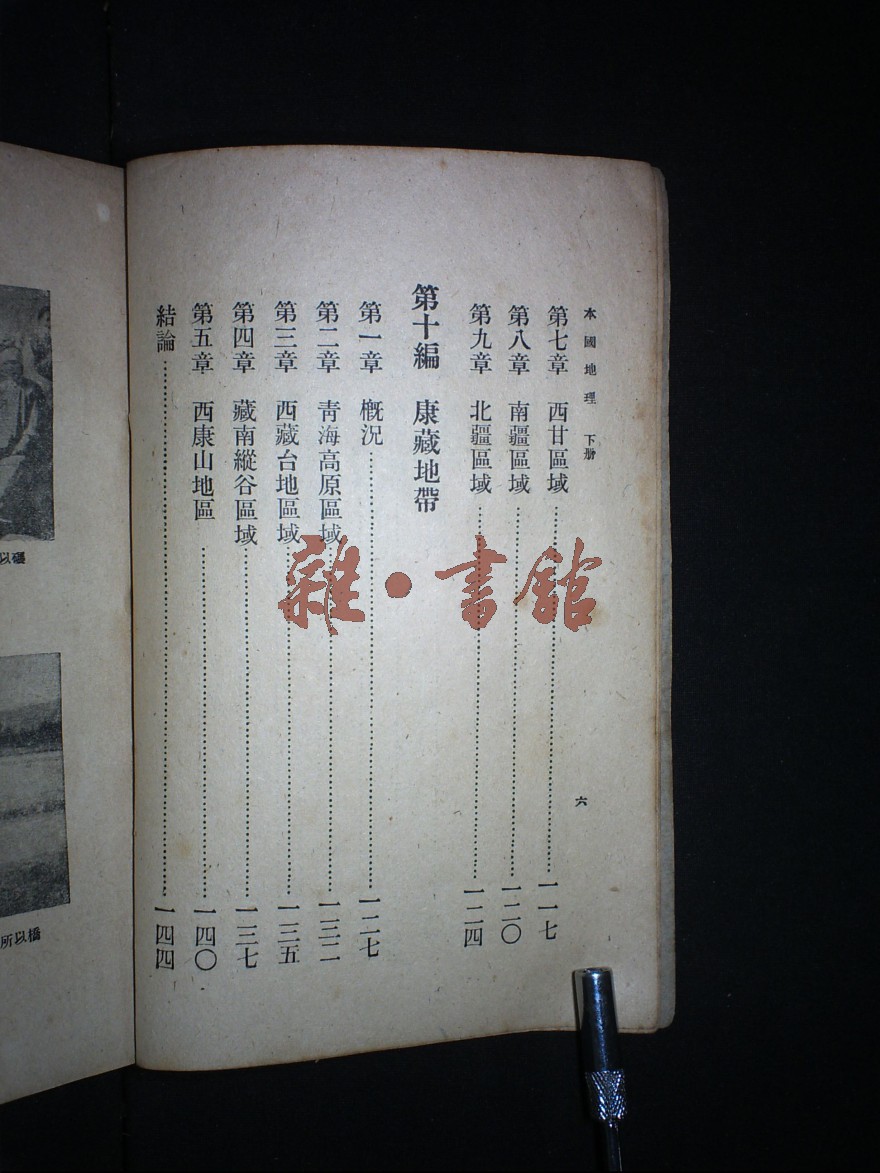 本國地理 下册
六
第七章 西甘區域……一一七
第八章 南疆區域……一二〇
第九章 北疆區域……一二四
第十編 康藏地帶
第一章 概況……一二七
第二章 青海高原區域……一三二
第三章 西藏台地區域……一三五
第四章 藏南縱谷區域……一三七
第五章 西康山地區……一四〇
結論……一四四
以礮
所以橋
雜·書館